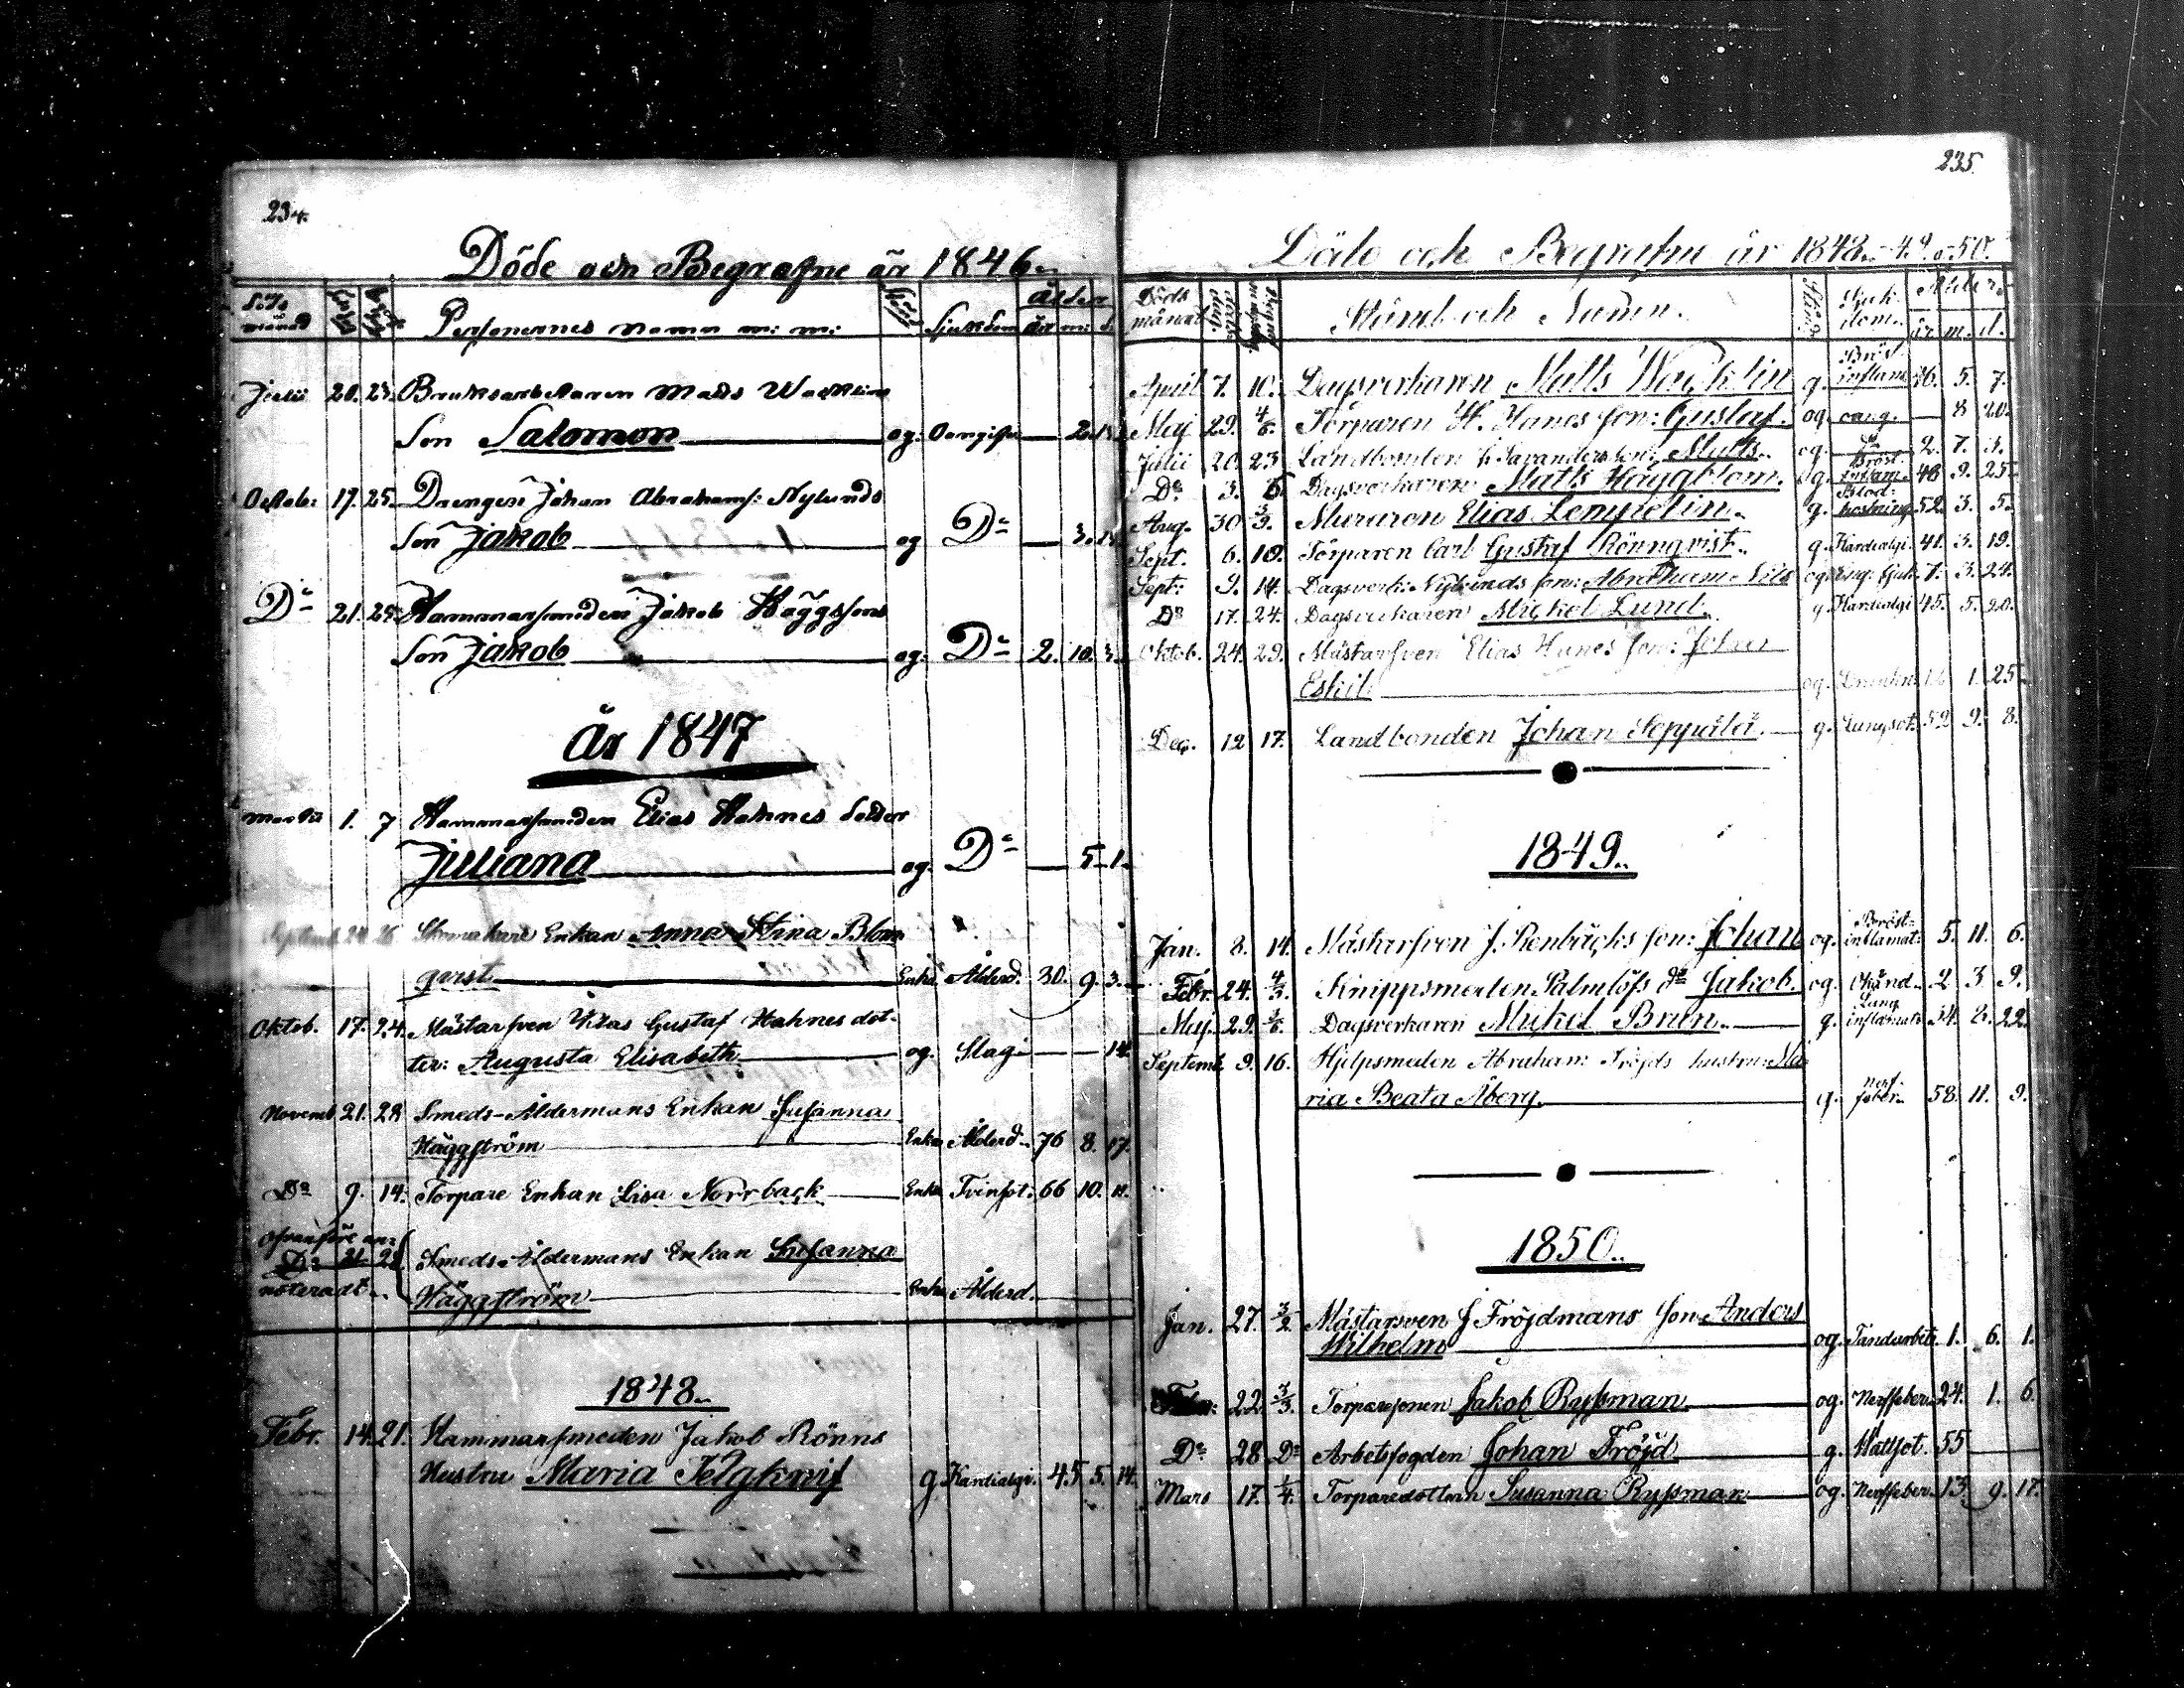 234.
Döde och Begrafne år 1846.
Döds månad
Personernes namn m: m: Sjukdom ålder år m: d.
Julii 20. 23. Bruksarbetaren Matts Wacklin
Son Salomon og: Oangifn — 2.
Octob: 17. 25. Drengen Johan Abrahams: Nylunds
Son Jakob og Do — 3.
Do 21. 25. Hammarsmeden Jakob Häggssons
Son Jakob og: Do 2. 10. 3.
År 1847
Martii 1. 7 Hammarsmeden Elias Hahnes dotter
Juliana og. Do — 5. 1.
Septemb 20 26 Skomakare Enkan Anna Stina Blom
qvist Enka Ålderd. 30. 9. 3.
Oktob. 17. 24. Mästarsven Klas Gustaf Hahnes dot-
ter: Augusta Elisabeth og. Slag — — 14.
Novemb. 21. 28 Smeds-Åldermans Enkan Susanna
Häggström Enka Ålderd. 76 8. 17.
Do 9. 14. Torpare Enkan Lisa Norrback Enka Tvinsot. 66 10. 11.
Ofvanföre an-
Do 21 28 Smeds-Åldermans Enkan Susanna
noteradt. Häggström Enka Ålderd.
1848.
Febr. 14. 21. Hammarsmeden Jakob Rönns
Hustru Maria Felgknif g Kardialgi. 45. 5. 14.
235.
Döde och Begrafne år 1848.-49.-50.
Döds månad Stånd och Namn. Sjuk-dom. Ålder. år. m. d.
April 7. 10. Dagsverkaren Matts Wacklin g. Bröst inflam 5. 7.
Maj 29. 4/6. Torparen H. Hanes son: Gustaf. og. oang. — 8 20.
Julii 20. 23 Landbonden son: Matts. og. — 2. 7. 3.
Do 3. 6. Dagsverkaren Matts Häggblom. og. Bröst inflam. 48 9. 25.
Aug. 30 3/9. Muraren Elias Lempelin. g. Blod-hostning 52. 3. 5.
Sept. 6. 10. Torparen Carl Gustaf Rönnqvist. g. Kardialgi. 41. 3. 19.
Sept: 9. 14. Dagsverk: Nylunds son: Abraham Nils og. Eng: Sjuk. 7. 3. 24.
Do 17. 24. Dagsverkaren Mickel Lund. g. Kardialgi 45. 5. 20.
Oktob. 24. 29. Mästarsven Elias Hanes son: Johan
Eskil og. 1. 25.
Dec. 12 17. Landbonden Johan Seppälä. g. Lungsot. 52 9. 8.
1849.
Jan. 8. 14. Mästarsven J. Renbäcks son: Johan og. Bröst-inflamat: 5. 11. 6.
Febr. 24. 4/3. Knippsmeden Palmlöfs do Jakob. og. Okänd. 2 3. 9.
Maj. 29. 3/6. Dagsverkaren Mickel Brun. g. Lung inflamat. 34. 8. 22.
Septemb. 9. 16. Hjelpsmeden Abraham: Fröjds hustru: Ma
ria Beata Åberg. g. Nerf-feber. 58. 11. 9.
1850.
Jan. 27. 3/2. Mästarsven J Fröjdmans son Anders
Wilhelm og. Tandarbet. 1. 6. 1.
Febr: 22. 3/3. Torparesonen Jakob Ryssman og. Nerffeber. 24. 1. 6.
Do 28. Do Arbetsfogden Johan Fröjd g. Hallsot. 55
Mars 17. 1/4. Torparedottren Susanna Ryssman og. Nerffeber. 13 9. 17.